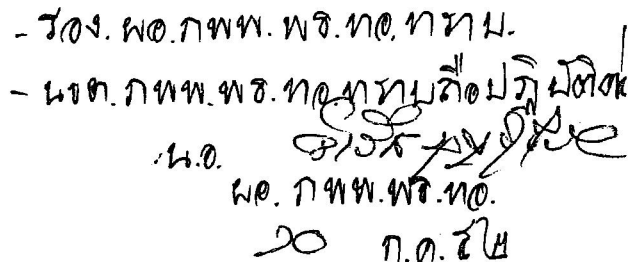 - รอง.ผอ.กพพ.พธ.ทอ.ทราบ.
- นขต.กพพ.พธ.ทอ.ทราบถือปฏิบัติต่อ
น.อ.
ผอ.กพพ.พธ.ทอ.
๒๐ ก.ค.